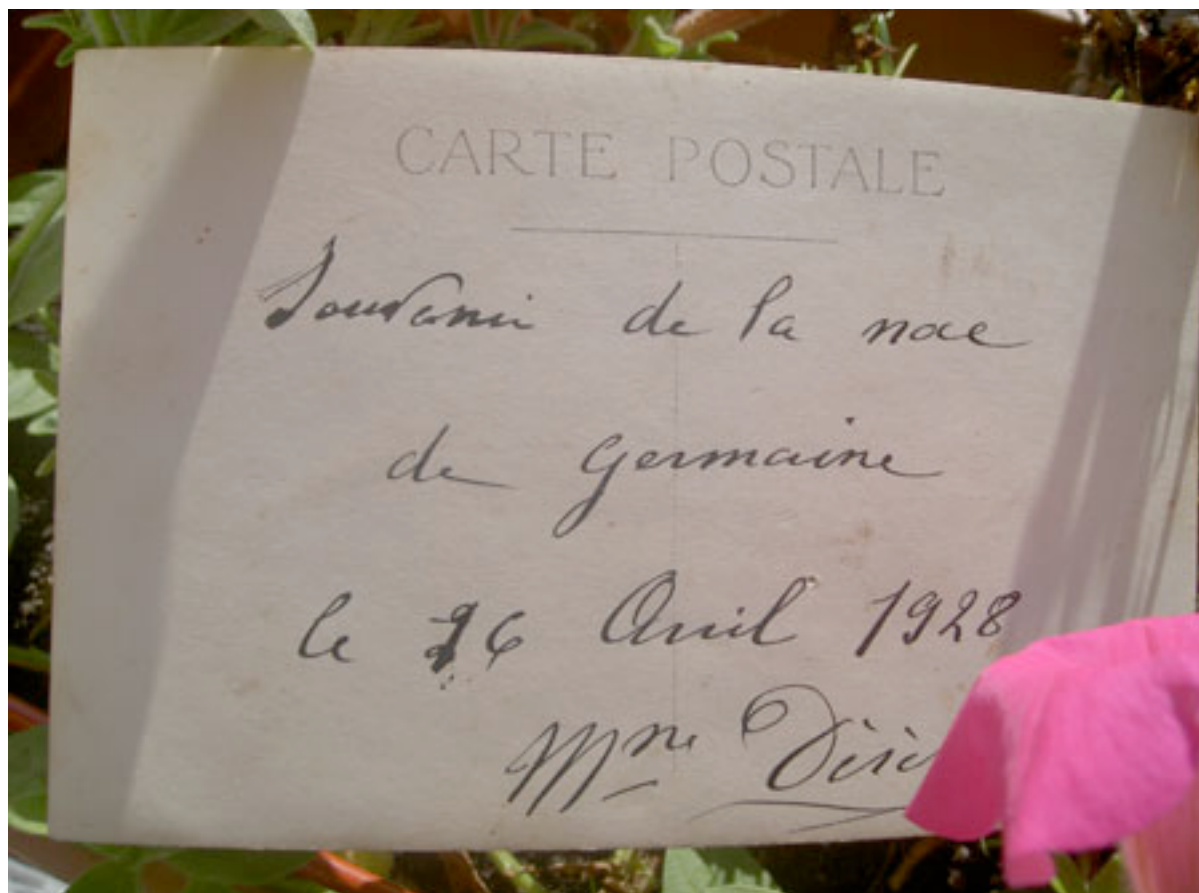 CARTE POSTALE
Souvenir de la noce
de Germaine
le 26 Avril 1928
Mme